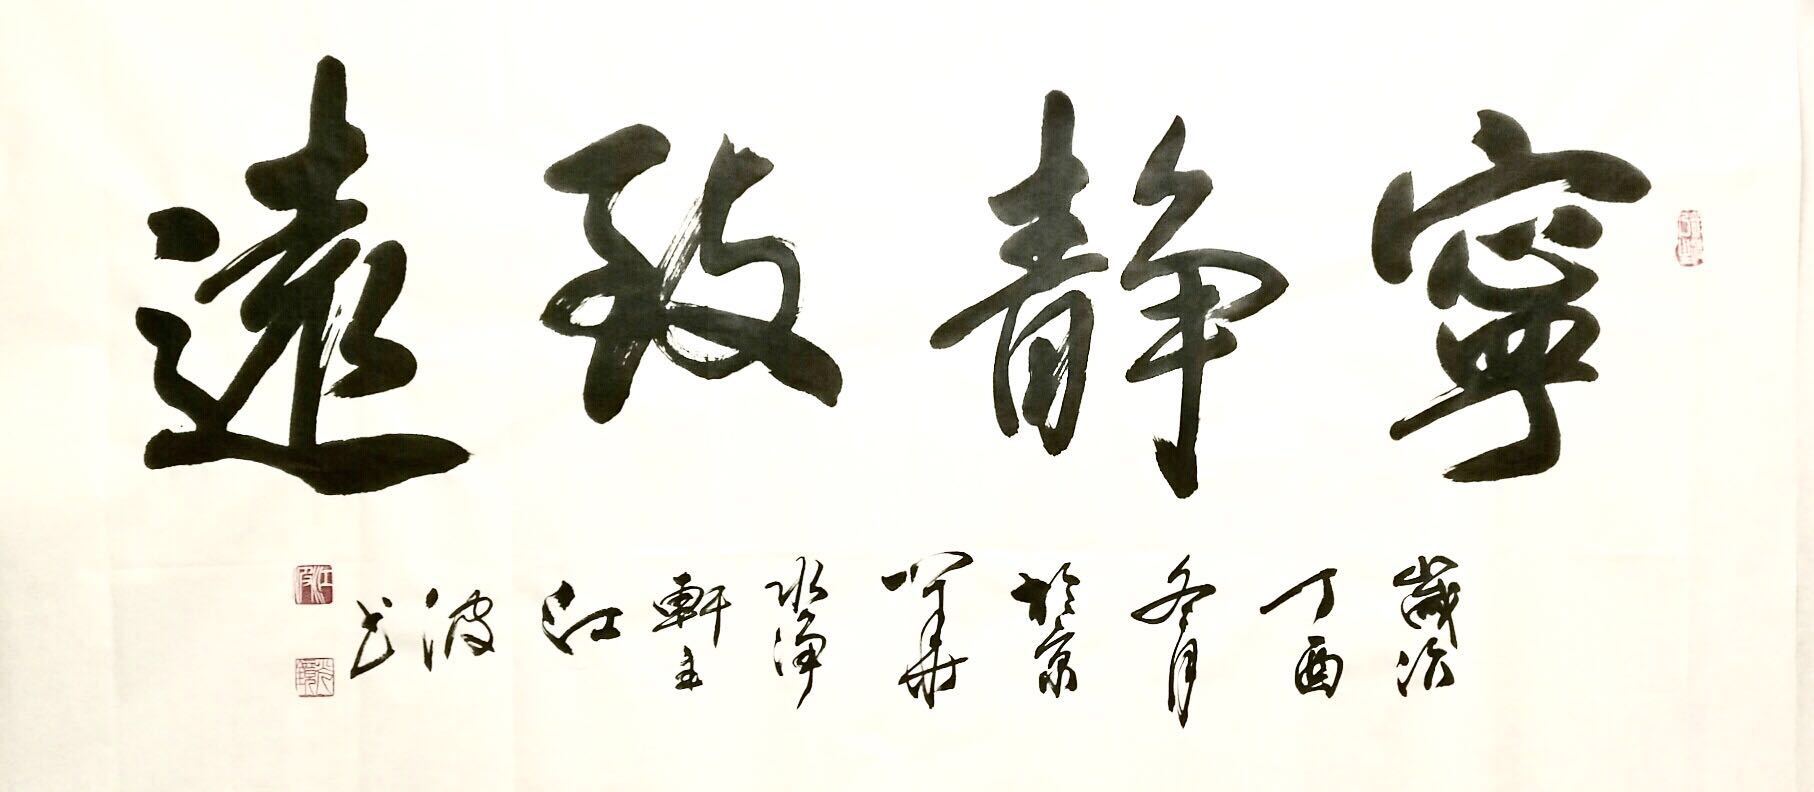 寧靜致遠
歲次丁酉冬月於京華水淨軒主江波書
江波